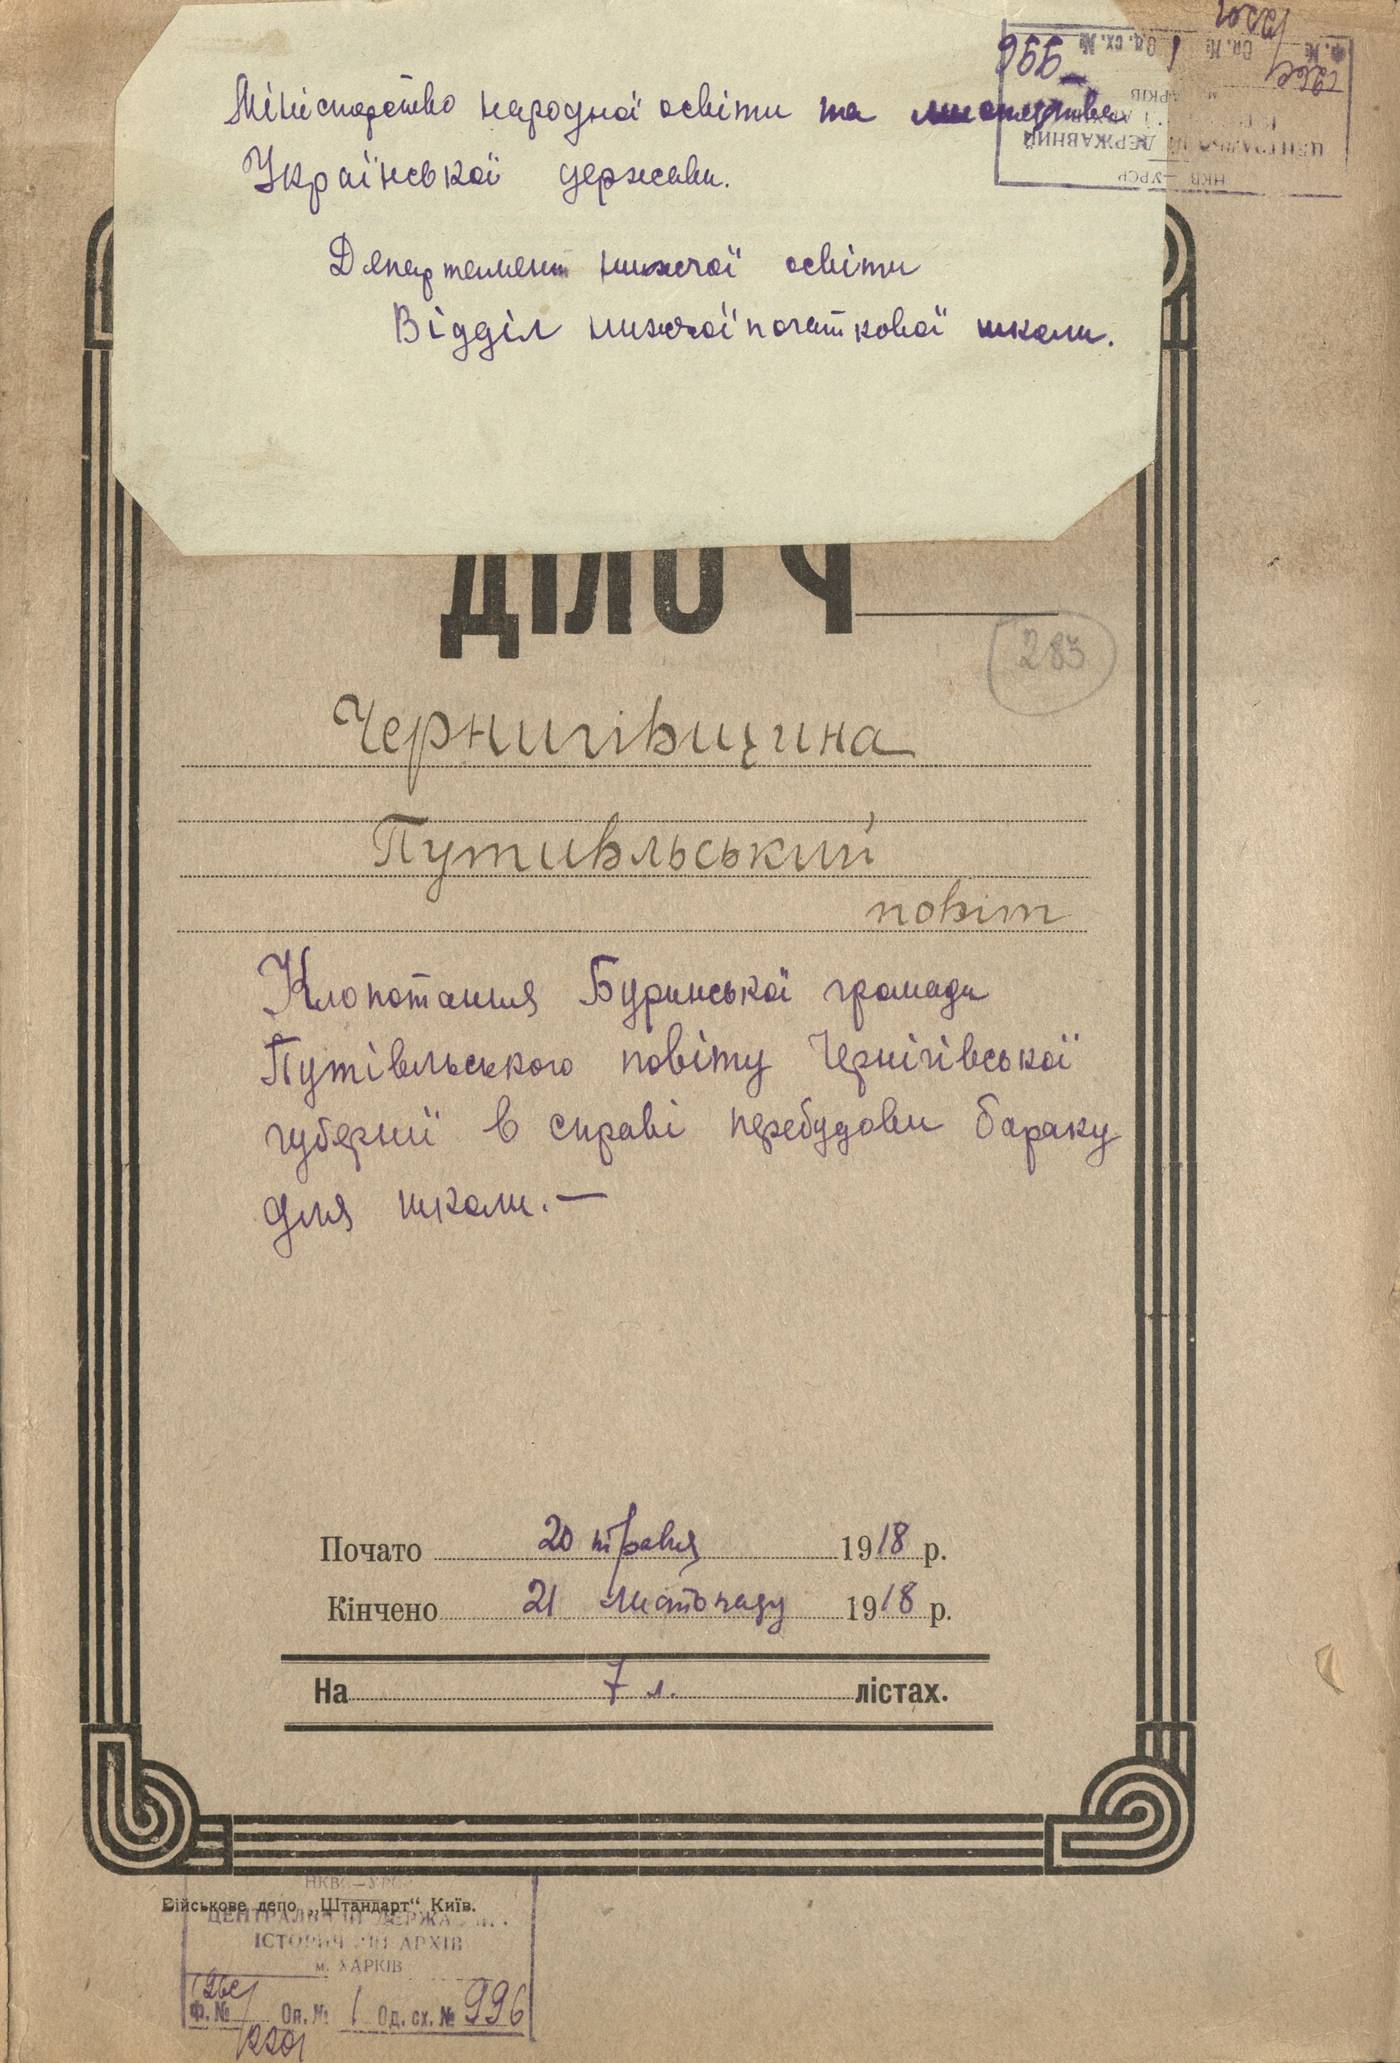 Міністерство народної освіти та мистецтва
Української держави.
Департамент нижчої освіти
Відділ нижчої початкової школи.
Ф. № Оп. № 1 Од. сх. № 996
М. ХАРКІВ
ЦЕНТРАЛЬНИЙ ДЕРЖАВНИЙ
НКВ — УРСР
ДІЛО Ч
283
Чернигівщина
Путивльський
повіт
Клопотання Буринської громади
Путівльського повіту Чернігівської
губернії в справі перебудови бараку
для школи. —
Почато 20 травня 1918 р.
Кінчено 21 листопаду 1918 р.
На 7 л. лістах.
НКВС — УРСР
Військове депо „Штандарт“ Київ.
ЦЕНТРАЛЬНИЙ ДЕРЖАВН.
ІСТОРИЧНИЙ АРХІВ
м. ХАРКІВ
Ф. № Оп. № 1 Од. сх. № 996
2201